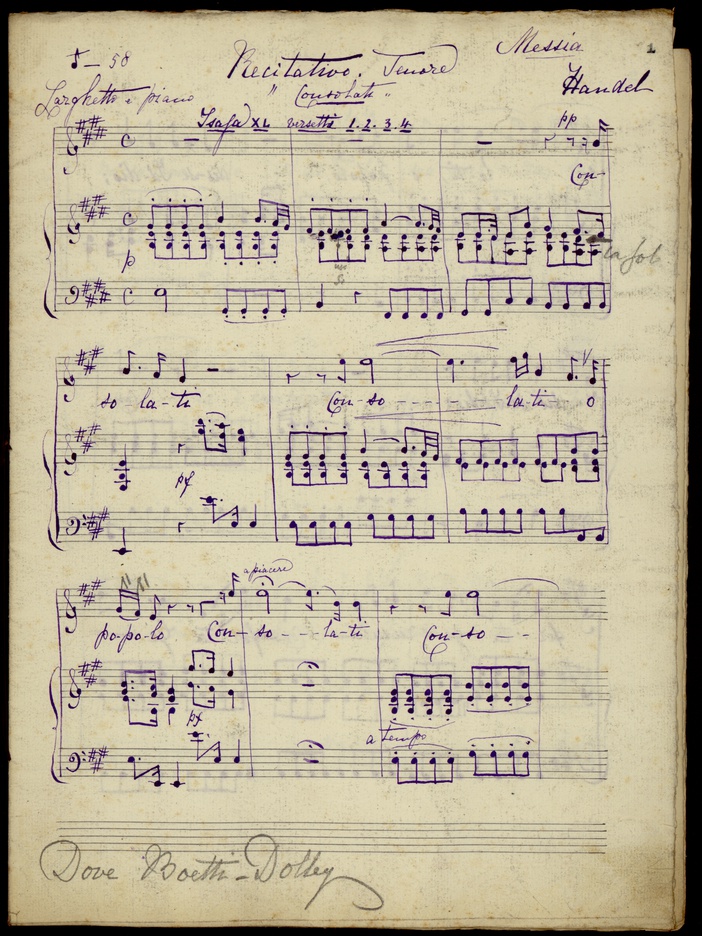 ♪ — 58
Recitativo. Tenore
Messia
1
Larghetto e piano
" Consolati "
Handel
Isaia XL versetti 1. 2. 3. 4
pp
Con-
p
la sol
so la-ti Con-so - - - - - - la-ti o
pf
a piacere
po-po-lo Con-so - - la-ti Con-so - - -
pf
a tempo
Dove Boetti-Dolley